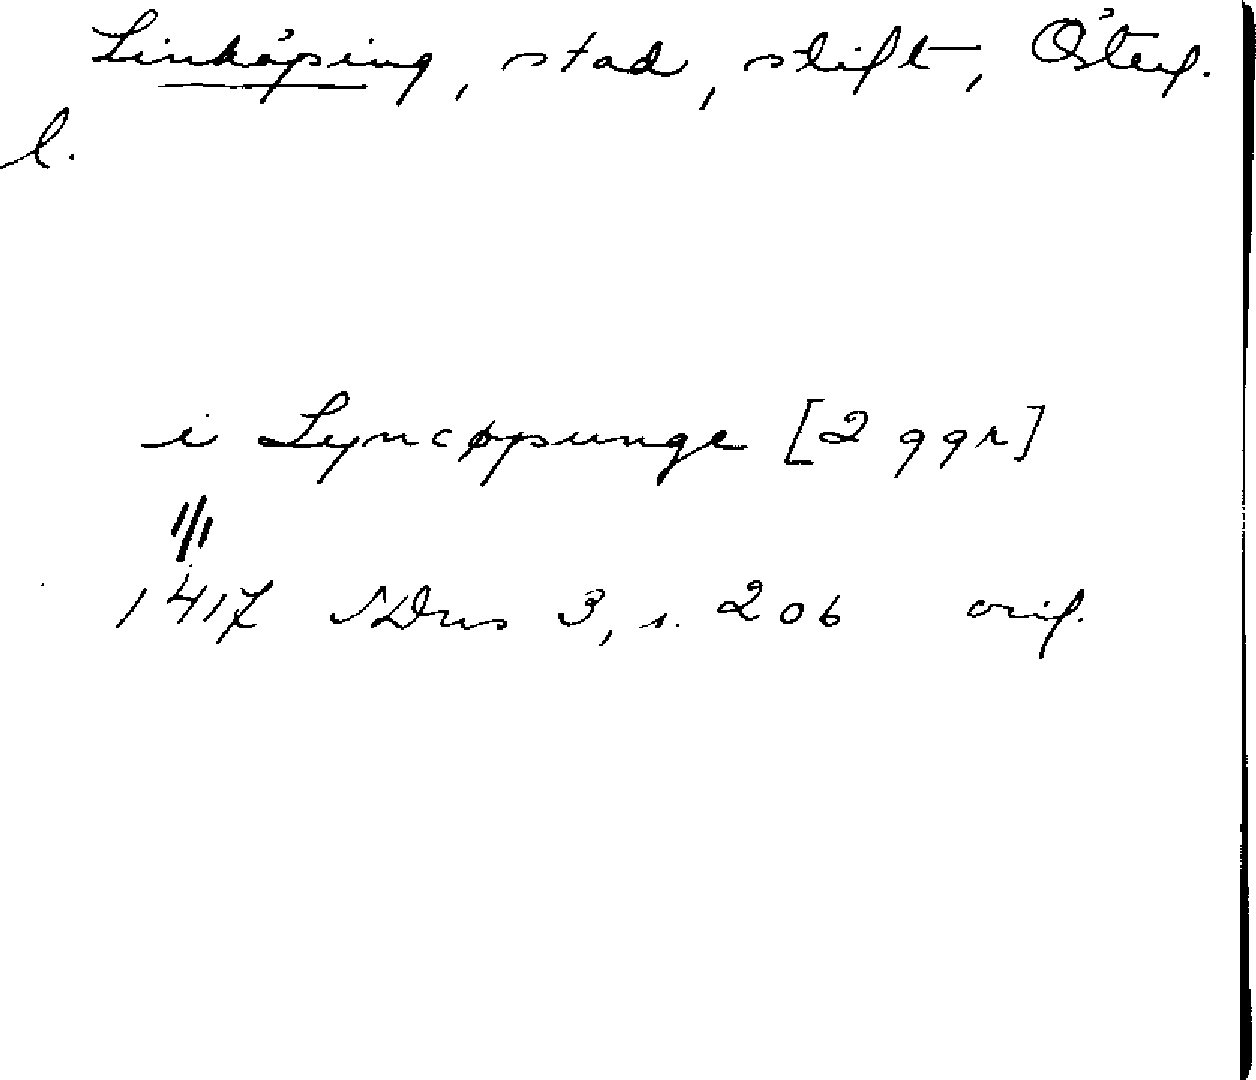 Linköping, stad, stift, Österg.
l.
i Lyncøpunge [2 ggr]
1/1
1417 NDns 3, s. 206 orig.